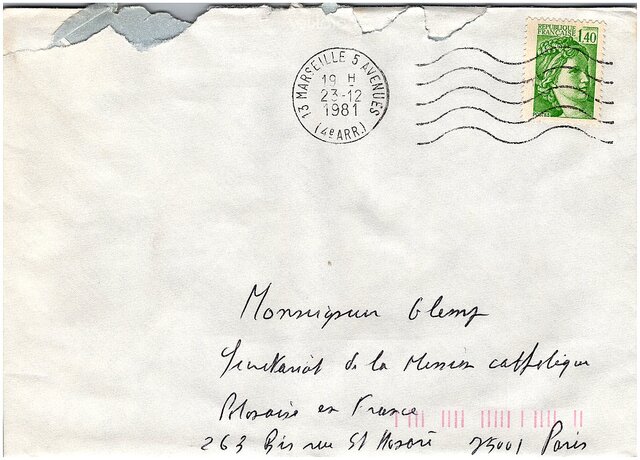 REPUBLIQUE
FRANCAISE
1,40
13 MARSEILLE 5 AVENUES
19 H
23-12
1981
(4e ARR.)
Monsigneur Glemp
Secretariat de la Mission catholique
Polonaise en France
263 Bis rue St Honoré 75001 Paris